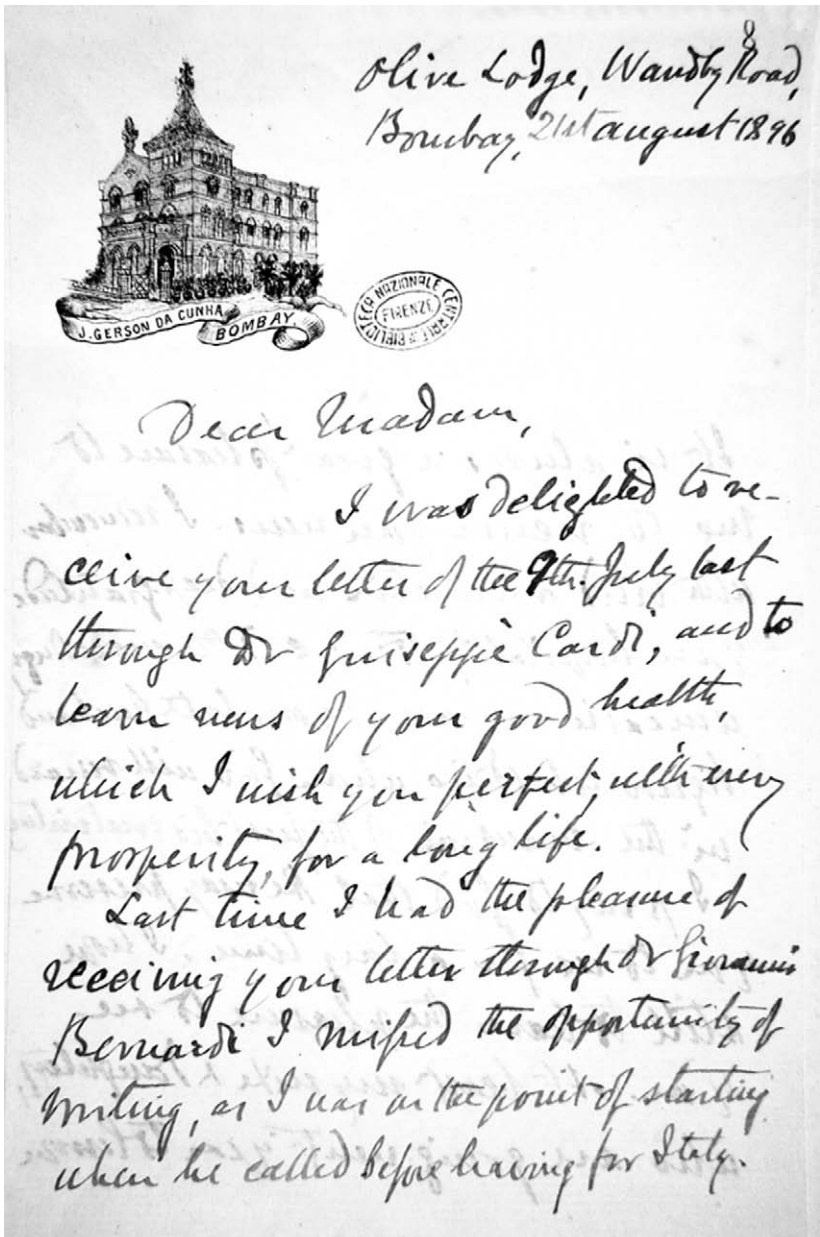 8
Olive Lodge, Wandby Road,
Bombay, 21st august 1896
J. GERSON DA CUNHA
BOMBAY
BIBLIOTECA NAZIONALE CENTRALE
FIRENZE
Dear Madam,
I was delighted to re-
ceive your letter of the 9th. July last
through Dr Guiseppie Cardi, and to
learn news of your good health,
which I wish you perfect, with every
prosperity, for a long life.
Last time I had the pleasure of
receiving your letter through Dr Giovanni
Bernardi I missed the opportunity of
writing, as I was on the point of starting
when he called before leaving for Italy.